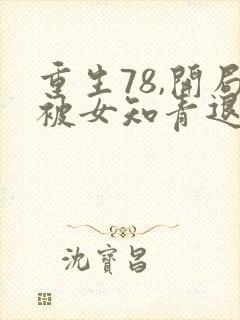 重生78,開局
被女知青退
沈寶昌